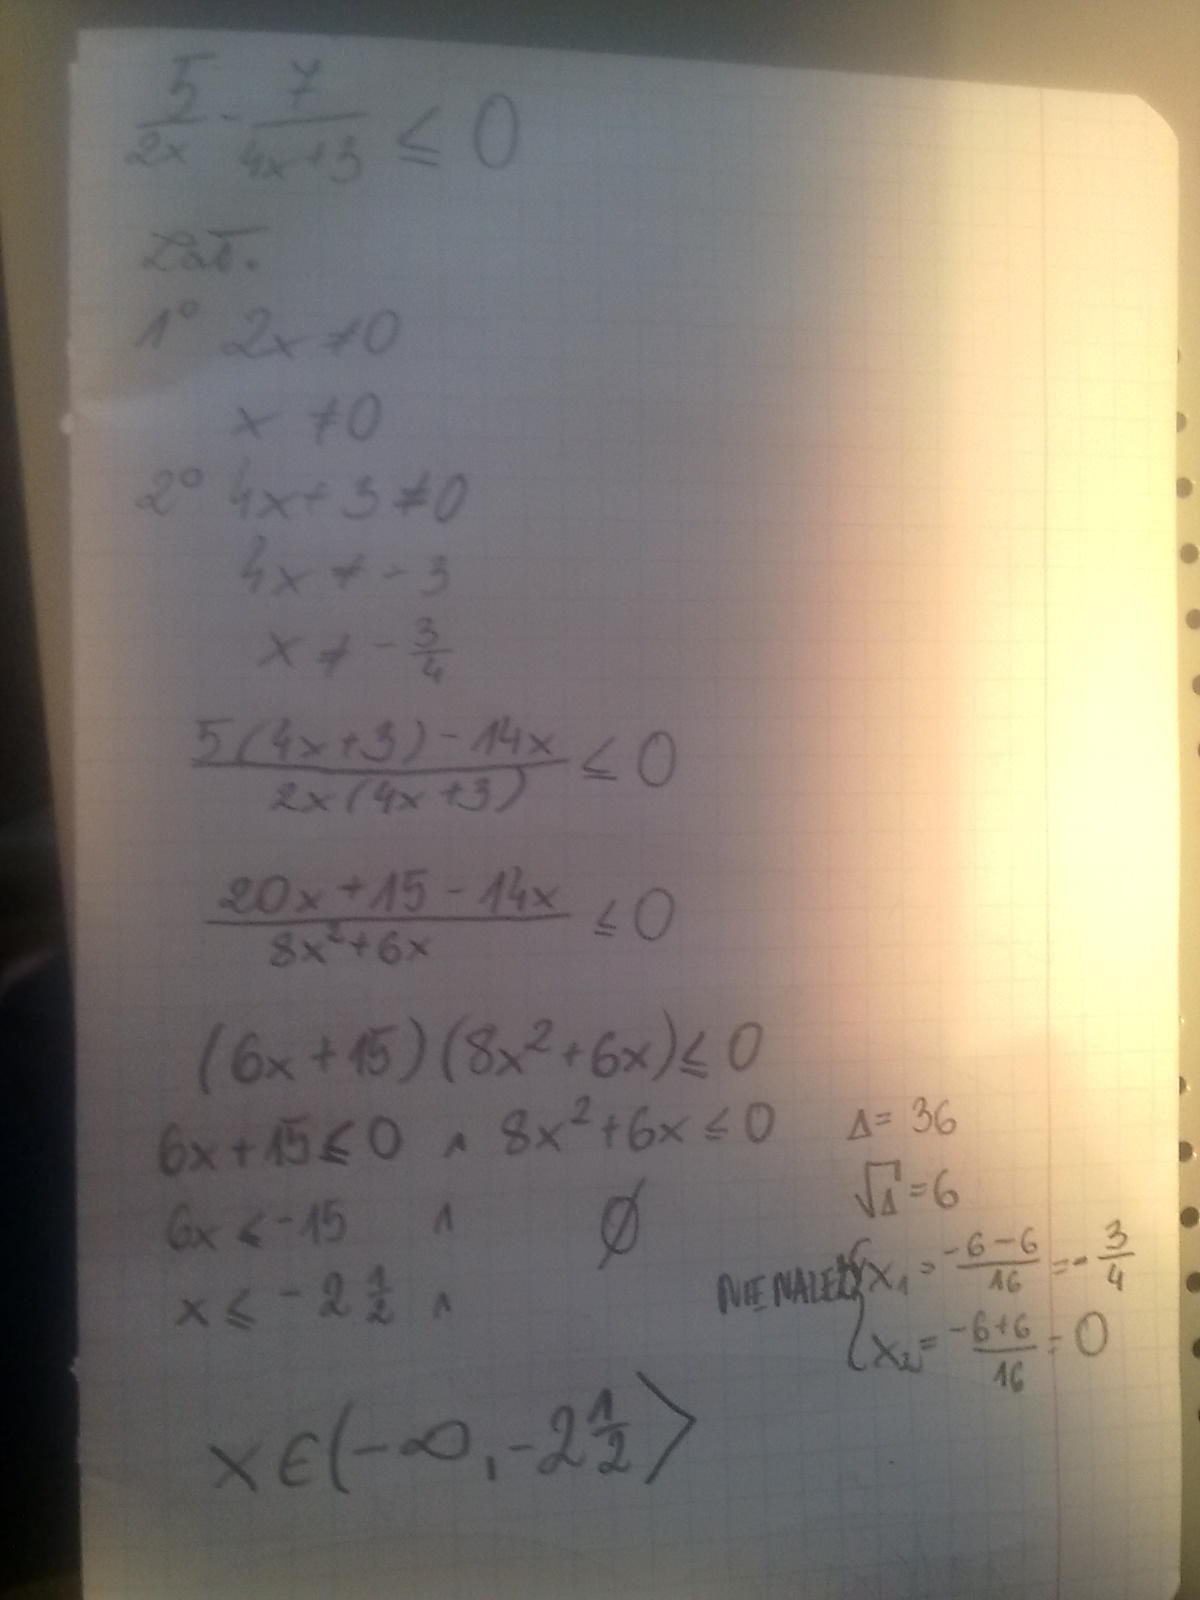 5/2x - 7/4x+3 ≤ 0
Zał.
1° 2x ≠ 0
x ≠ 0
2° 4x+3 ≠ 0
4x ≠ -3
x ≠ -3/4
5(4x+3)-14x / 2x(4x+3) ≤ 0
20x+15-14x / 8x²+6x ≤ 0
(6x+15)(8x²+6x) ≤ 0
6x+15 ≤ 0 ∧ 8x²+6x ≤ 0
6x ≤ -15 ∧ ∅
x ≤ -2 1/2 ∧
Δ = 36
√Δ = 6
NIE NALEŻY { x₁ = -6-6/16 = -3/4
x₂ = -6+6/16 = 0
x ∈ (-∞, -2 1/2⟩